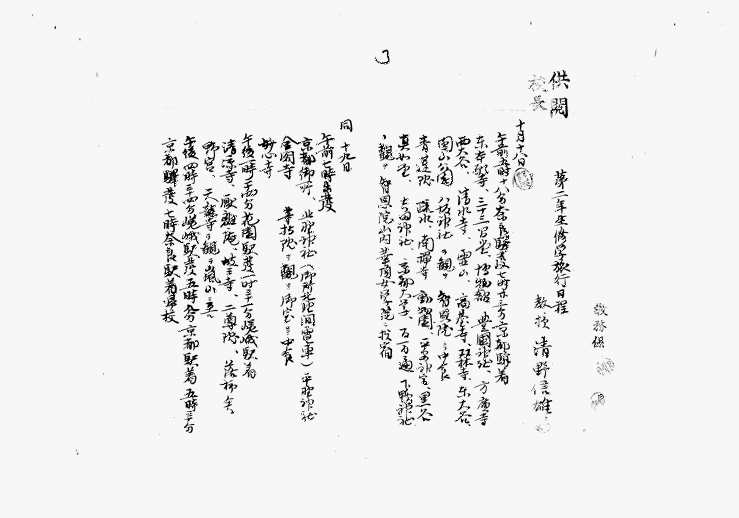 供閲
校長
第二年生修学旅行日程
教務係
教授 清野信雄
十月十八日
午前五時十八分奈良駅発七時十三分京都駅着
東本願寺、三十三間堂、博物館、豊国神社、方広寺
西大谷、清水寺、霊山、高台寺、双林寺、東大谷、
円山公園、八坂神社ヲ観テ智恩院ニ中食
青蓮院、疏水、南禅寺、動物園、平安神宮、黒谷
真如堂、吉田神社、京都大学、百万遍、下鴨神社
ヲ観テ智恩院山内華頂女学院ニ投宿
同 十九日
午前七時出発
京都御所、北野神社(御所北野間電車)平野神社
金閣寺、等持院ヲ観テ御室ニ中食
妙心寺
午後一時二十四分花園駅発一時三十一分嵯峨駅着
清凉寺、厭離庵、祇王寺、二尊院、落柿舎
野宮、天龍寺ヲ観テ嵐山ニ至ル
午後四時三十四分嵯峨駅発五時 分京都駅着五時三十分
京都駅発七時奈良駅着帰校